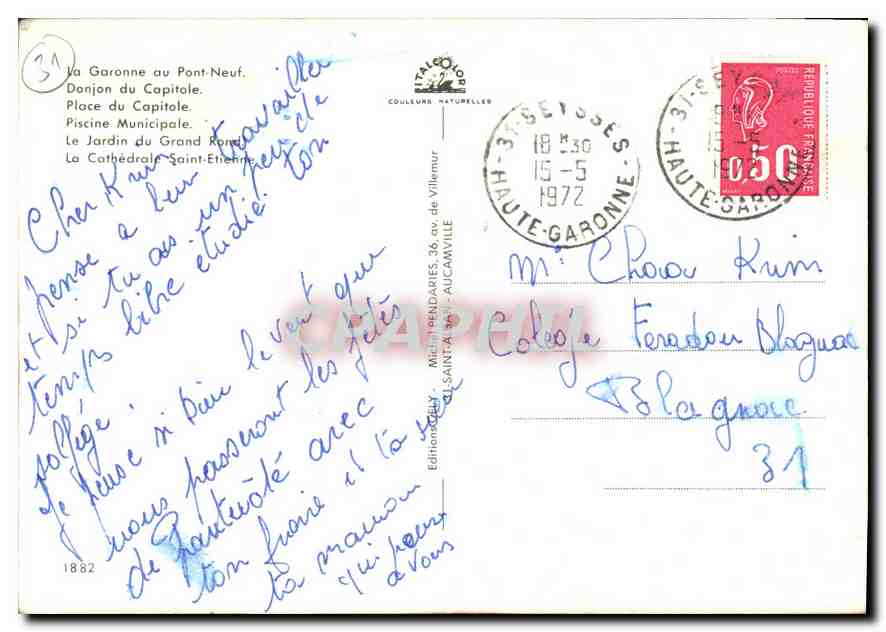 31
La Garonne au Pont-Neuf.
Donjon du Capitole.
Place du Capitole.
Piscine Municipale.
Le Jardin du Grand Rond.
La Cathédrale Saint-Etienne.
ITALCOLOR
COULEURS NATURELLES
31-SEYSSES
18 H 30
15-5
1972
HAUTE-GARONNE
31-SEYSSES
15-5
1972
HAUTE-GARONNE
POSTES
REPUBLIQUE FRANÇAISE
0,50
Cher Krim travaille
pense a bien
et si tu as un peu de
temps libre étudie ton
solfége.
Je pense si Dieu le veut que
nous passeront les fetes
de Pantecôté avec
ton fraire et ta seur
ta maman
qui pense
a vous
Editions CELY - Michel PENDARIES, 36, av. de Villemur
31-SAINT-ALBAN - AUCAMVILLE
CPAPHIL
Mr Krim
Colége Feradou Blagnac
Blagnac
31
1882